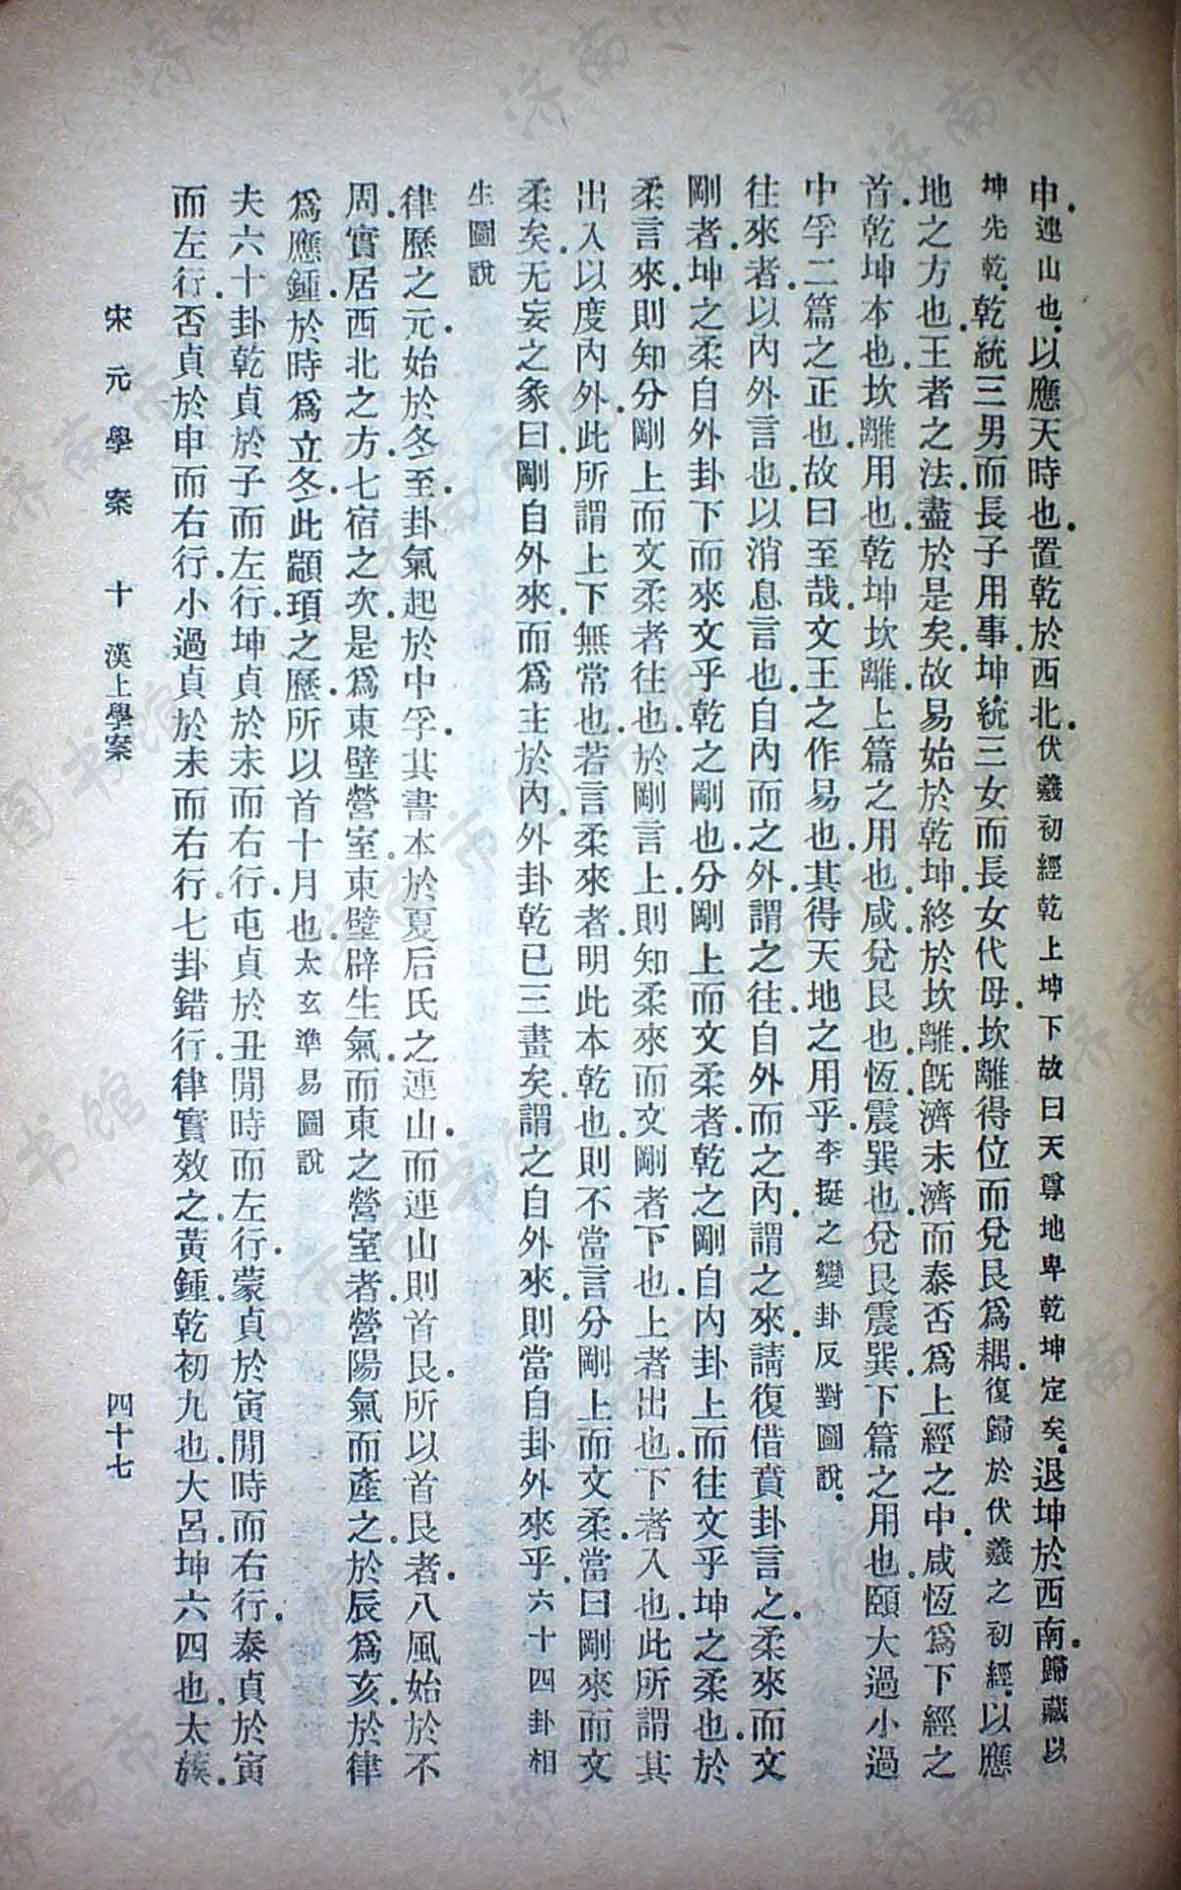 申.連山也.以應天時也.置乾於西北.伏羲初經乾上坤下故曰天尊地卑乾坤定矣.退坤於西南.歸藏以
坤先乾.乾統三男而長子用事.坤統三女而長女代母.坎離得位而兌艮爲耦.復歸於伏羲之初經.以應
地之方也.王者之法.盡於是矣.故易始於乾坤.終於坎離.旣濟未濟.而泰否爲上經之中.咸恆爲下經之
首.乾坤本也.坎離用也.乾坤坎離.上篇之用也.咸兌艮也.恆震巽也.兌艮震巽.下篇之用也.頤大過小過
中孚.二篇之正也.故曰至哉.文王之作易也.其得天地之用乎.李挺之變卦反對圖說.
往來者.以內外言也.以消息言也.自內而之外謂之往.自外而之內.謂之來.請復借賁卦言之.柔來而文
剛者.坤之柔自外卦下而來文乎乾之剛也.分剛上而文柔者.乾之剛.自內卦上而往文乎坤之柔也.於
柔言來.則知分剛上而文柔者往也.於剛言上.則知柔來而文剛者下也.上者出也.下者入也.此所謂其
出入以度內外.此所謂上下無常也.若言柔來者.明此本乾也.則不當言分剛上而文柔.當曰剛來而文
柔矣.无妄之彖曰剛自外來.而爲主於內.外卦乾已三畫矣.謂之自外來.則當自卦外來乎.六十四卦相
生圖說
律歷之元.始於冬至.卦氣起於中孚.其書本於夏后氏之連山.而連山則首艮.所以首艮者.八風始於不
周.實居西北之方.七宿之次.是爲東壁營室.東壁辟生氣.而東之營室者.營陽氣而產之.於辰爲亥.於律
爲應鍾.於時爲立冬.此顓頊之歷.所以首十月也.太玄準易圖說
夫六十卦.乾貞於子而左行.坤貞於未而右行.屯貞於丑閒時而左行.蒙貞於寅閒時而右行.泰貞於寅
而左行.否貞於申而右行.小過貞於未而右行.七卦錯行.律實效之.黃鍾.乾初九也.大呂.坤六四也.太蔟.
宋元學案 十 漢上學案 四十七